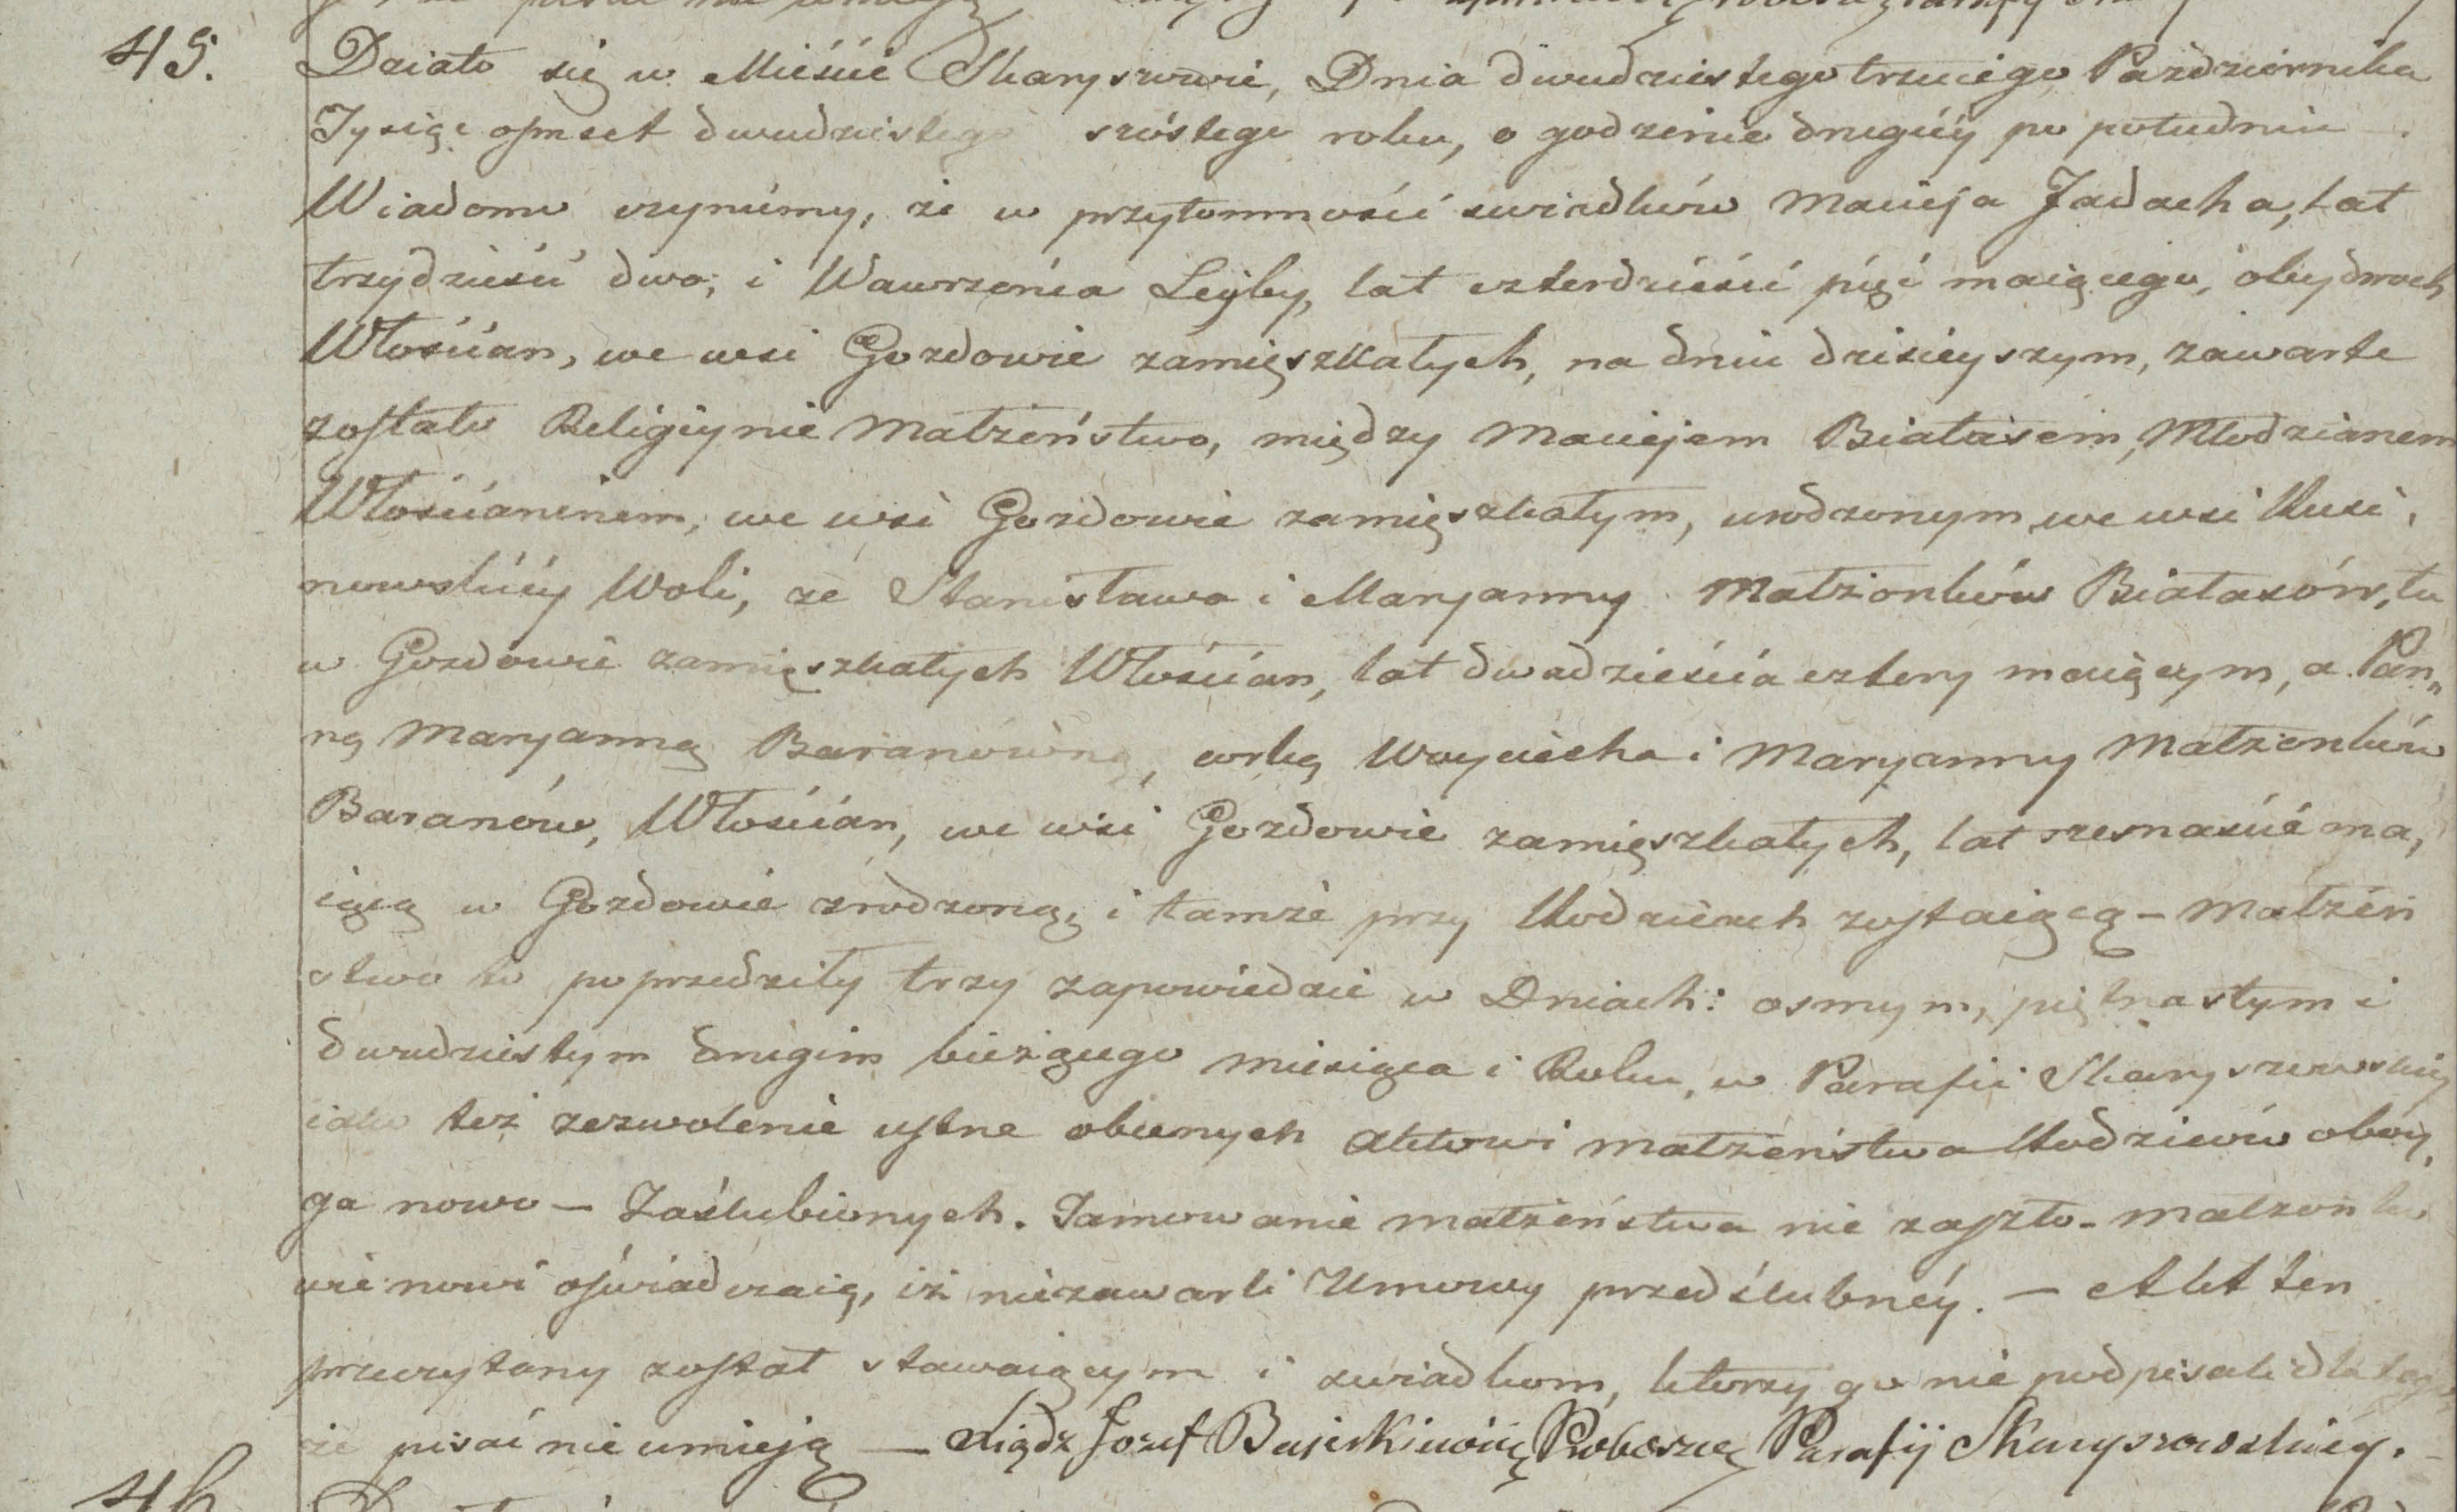 45. Działo się w Mieście Skaryszewie, Dnia dwudziestego trzeciego Pazdziernika
Tysiąc ośmset dwudziestego szóstego roku, o godzinie drugiéy po południu.
Wiadomo czyniemy, że w przytomności swiadków Macieja Jadacha, lat
trzydzieści dwa, i Wawrzeńca Lejby, lat czterdzieści pięć maiącego, obydwoch
Włościan, we wsi Gozdowie zamięszkałych, na dniu dzisieyszym, zawarte
zostało Religiynie Małżeństwo, między Maciejem Białasem, Młodzianem
Włościaninem, we wsi Gozdowie zamięszkałym, urodzonym we wsi Kusi,
nowskiéy Woli, ze Stanisława i Maryanny Małżonków Białasów, tu
w Gozdowie zamięszkałych Włościan, lat dwadzieścia cztery maiącym, a Pan„
ną Maryanną Baranówną, córką Woyciecha i Maryanny Małżonków
Baranów, Włościan, we wsi Gozdowie zamięszkałych, lat szesnaście ma,
iącą w Gozdowie zrodzoną, i tamże przy Rodzicach zostaiącą – Małżeń
stwo to poprzedziły trzy zapowiedzie w Dniach: osmym, piętnastym i
dwudziestym drugim bieżącego miesiąca i Roku, w Parafii Skaryszewskiéy
iako też zezwolenie ustne obecnych Aktowi małżeństwa Rodziców oboy,
ga nowo – Zaślubionych. Tamowanie małżeństwa nie zaszło – małżonko
wie nowi oświadczaią, iż niezawarli Umowy przedślubnéy. – Akt ten
przeczytany został stawaiącym i swiadkom, którzy go nie podpisali dla tego
że pisać nie umieją – Xiądz Jozef Proboszcz Parafij Skaryszewskiey.
46